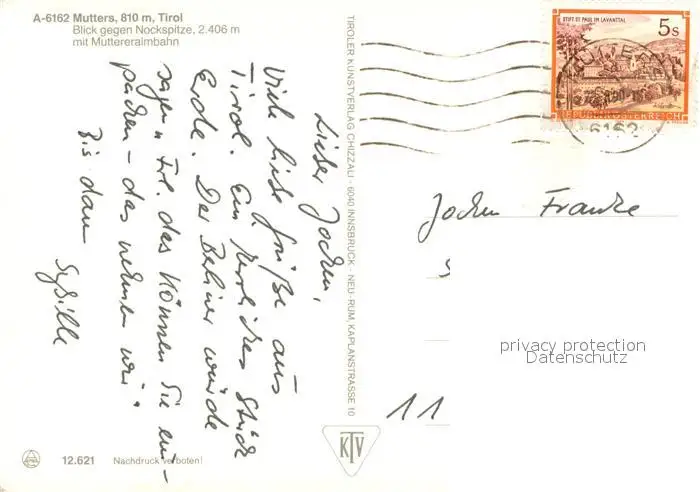 A-6162 Mutters, 810 m, Tirol
Blick gegen Nockspitze, 2.406 m
mit Muttereralmbahn
Lieber Jochen,
Viele liebe Grüße aus
Tirol. Ein herrliches Stück
Erde. Der Berliner würde
sagen: Frl. das können Sie ein-
packen – das nehmen wir!
Bis dann
Sybille
TIROLER KUNSTVERLAG CHIZZALI · 6040 INNSBRUCK - NEU-RUM, KAPLANSTRASSE 10
STIFT ST. PAUL IM LAVANTTAL
5s
REPUBLIK ÖSTERREICH
MUTTERS
6162
Jochen Franke
privacy protection
Datenschutz
11
KTV
12.621 Nachdruck verboten!